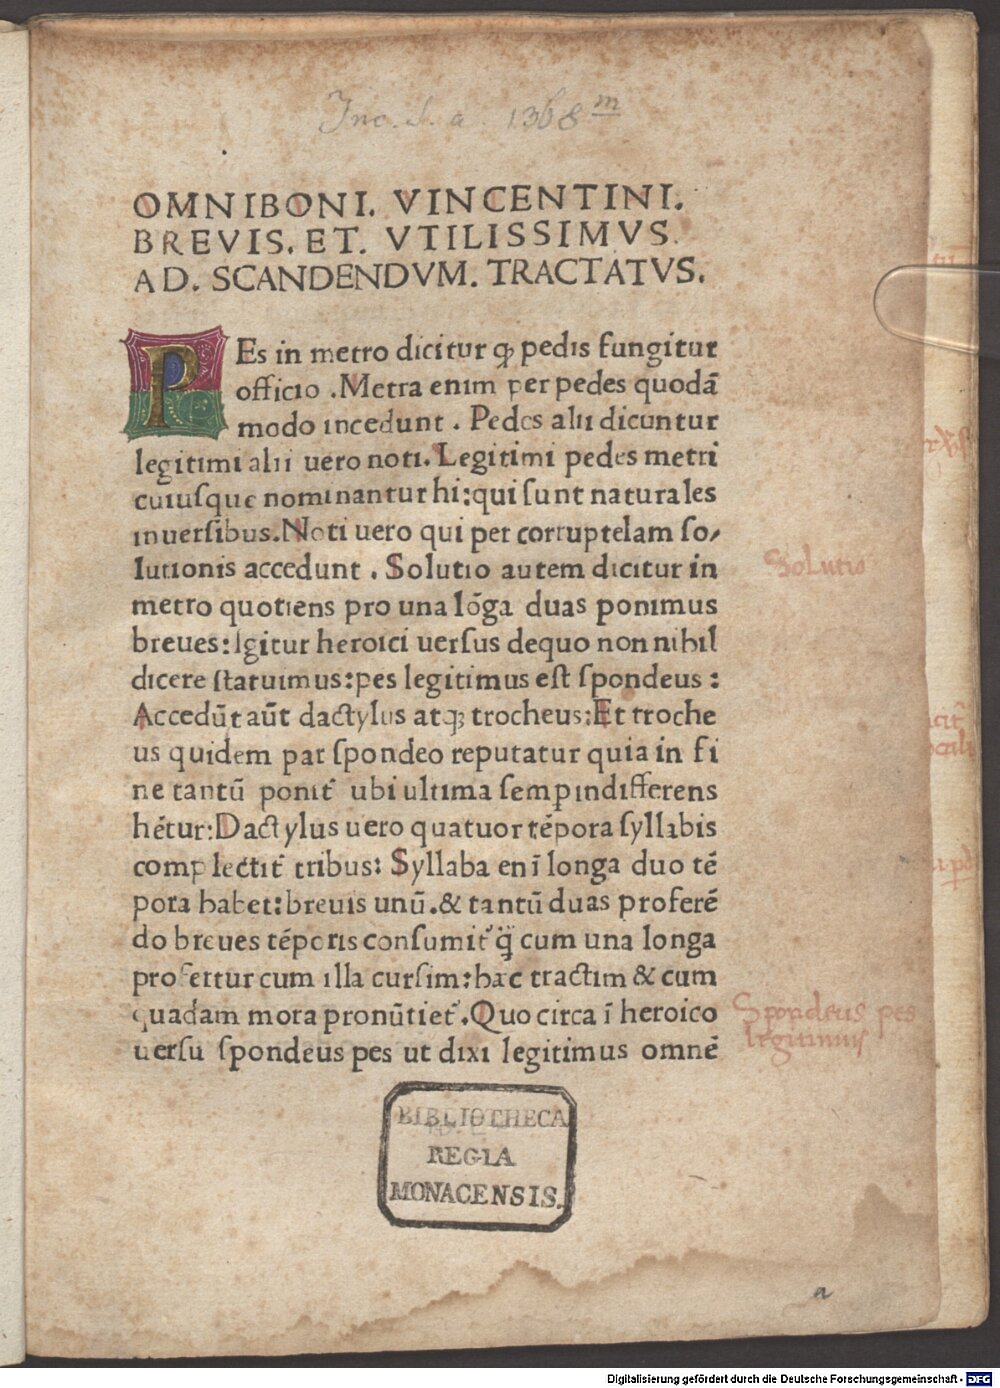 Inc. s. a. 1368 m
OMNIBONI. VINCENTINI.
BREVIS. ET. VTILISSIMVS.
AD. SCANDENDVM. TRACTATVS.
PEs in metro dicitur ꝙ pedis fungitur
officio .Metra enim per pedes quodā
modo incedunt . Pedes alii dicuntur
legitimi alii uero noti. Legitimi pedes metri
cuiuſque nominantur hi: qui ſunt naturales
in uerſibus. Noti uero qui per corruptelam ſo,
lutionis accedunt . Solutio autem dicitur in
metro quotiens pro una lōga duas ponimus
breues: Igitur heroici uerſus dequo non nihil
dicere ſtatuimus: pes legitimus eſt ſpondeus :
Accedūt aūt dactylus atqꝫ trocheus: Et troche
us quidem par ſpondeo reputatur quia in fi
ne tantū ponit᷑ ubi ultima ſemp indifferens
hētur: Dactylus uero quatuor tēpora ſyllabis
complectit᷑ tribus: Syllaba enī longa duo tē
pora habet: breuis unū. & tantū duas proferē
do breues tēporis conſumit᷑ q̄ȝ cum una longa
profertur cum illa curſim: hac tractim & cum
quadam mora pronūtiet᷑. Quo circa ī heroico
uerſu ſpondeus pes ut dixi legitimus omnē
Solutio
Spondeus pes
legitimus
BIBLIOTHECA
REGIA
MONACENSIS.
a
Digitalisierung gefördert durch die Deutsche Forschungsgemeinschaft - DFG